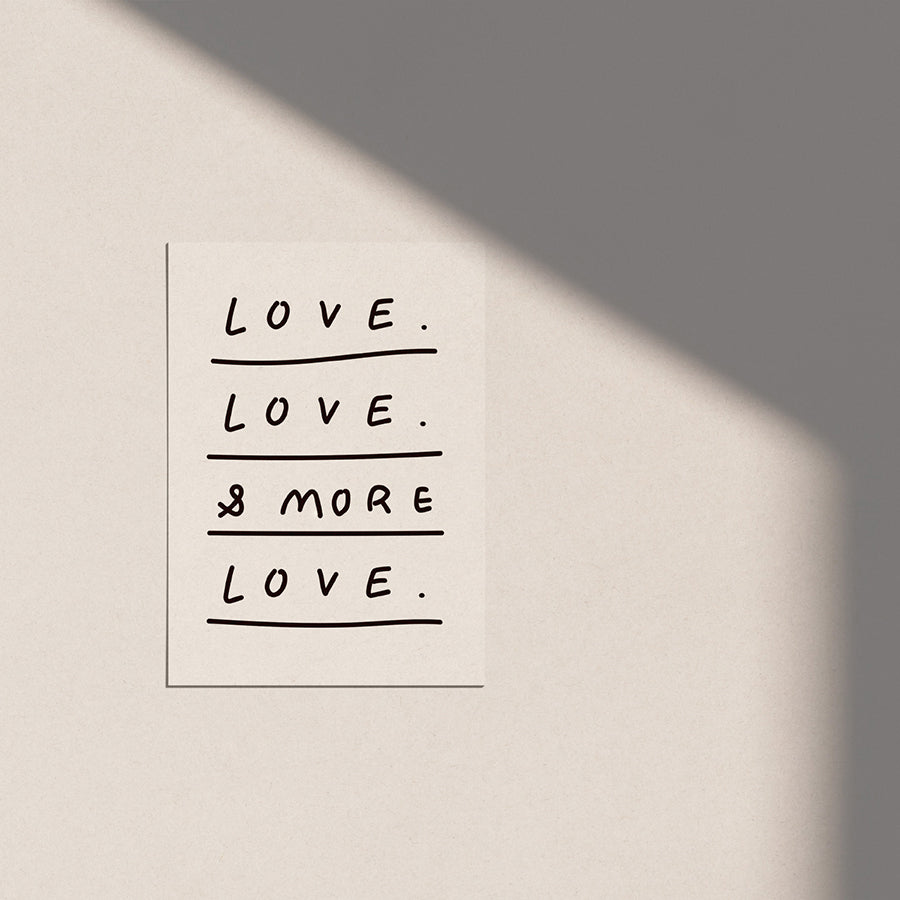 LOVE.
LOVE.
& MORE
LOVE.